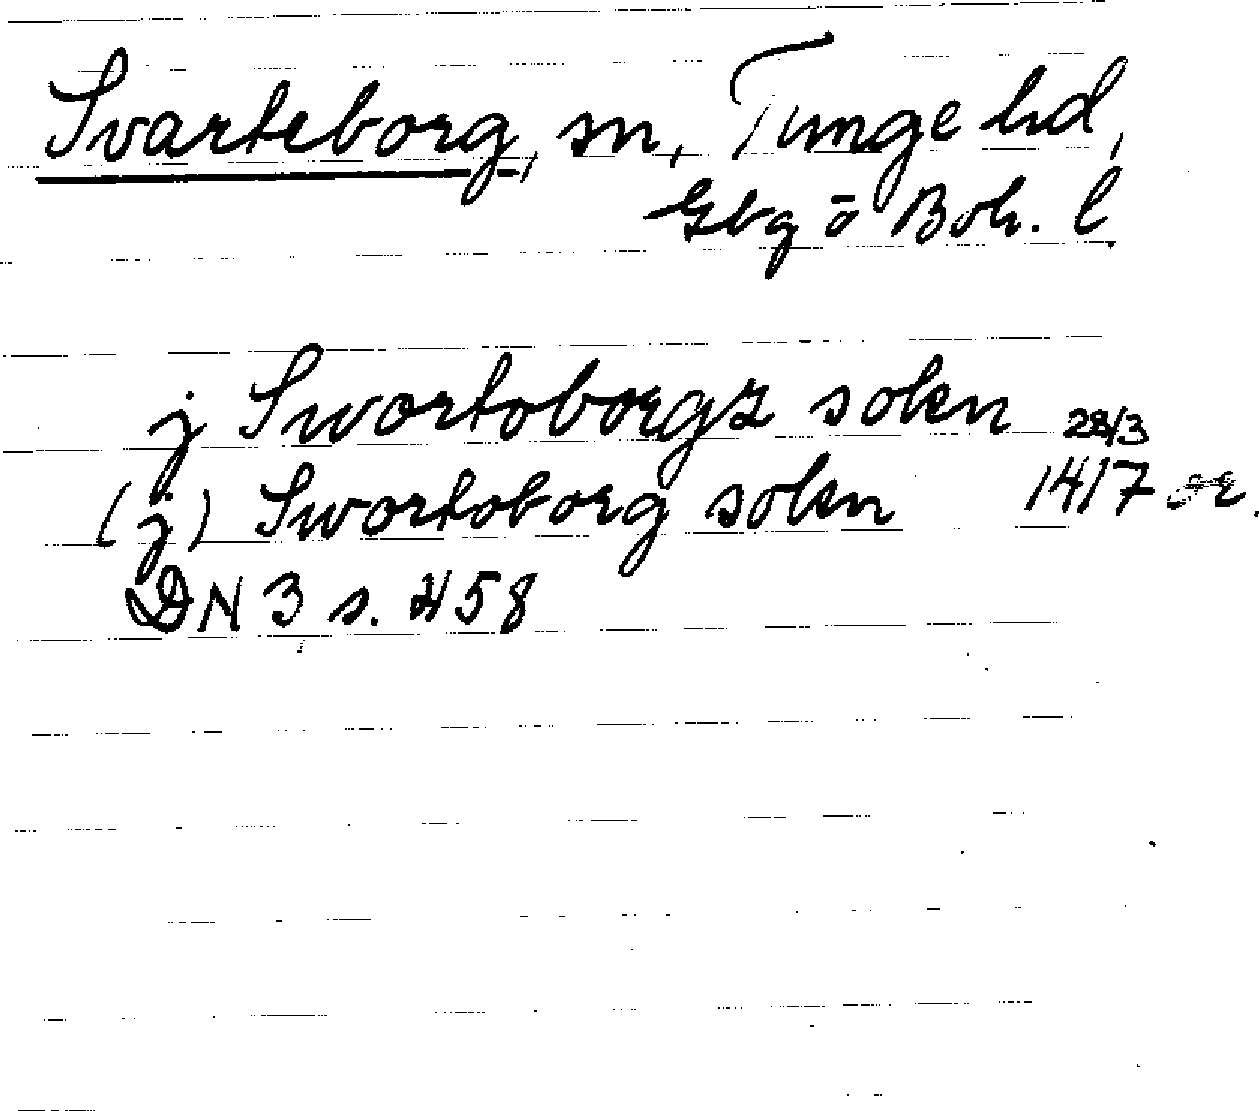 Svarteborg, sn, Tunge hd,
Gbg o Boh. l.
j Swortoborgz sokn 28/3
(j) Swortoborg sokn 1417 or.
DN 3 s. 458